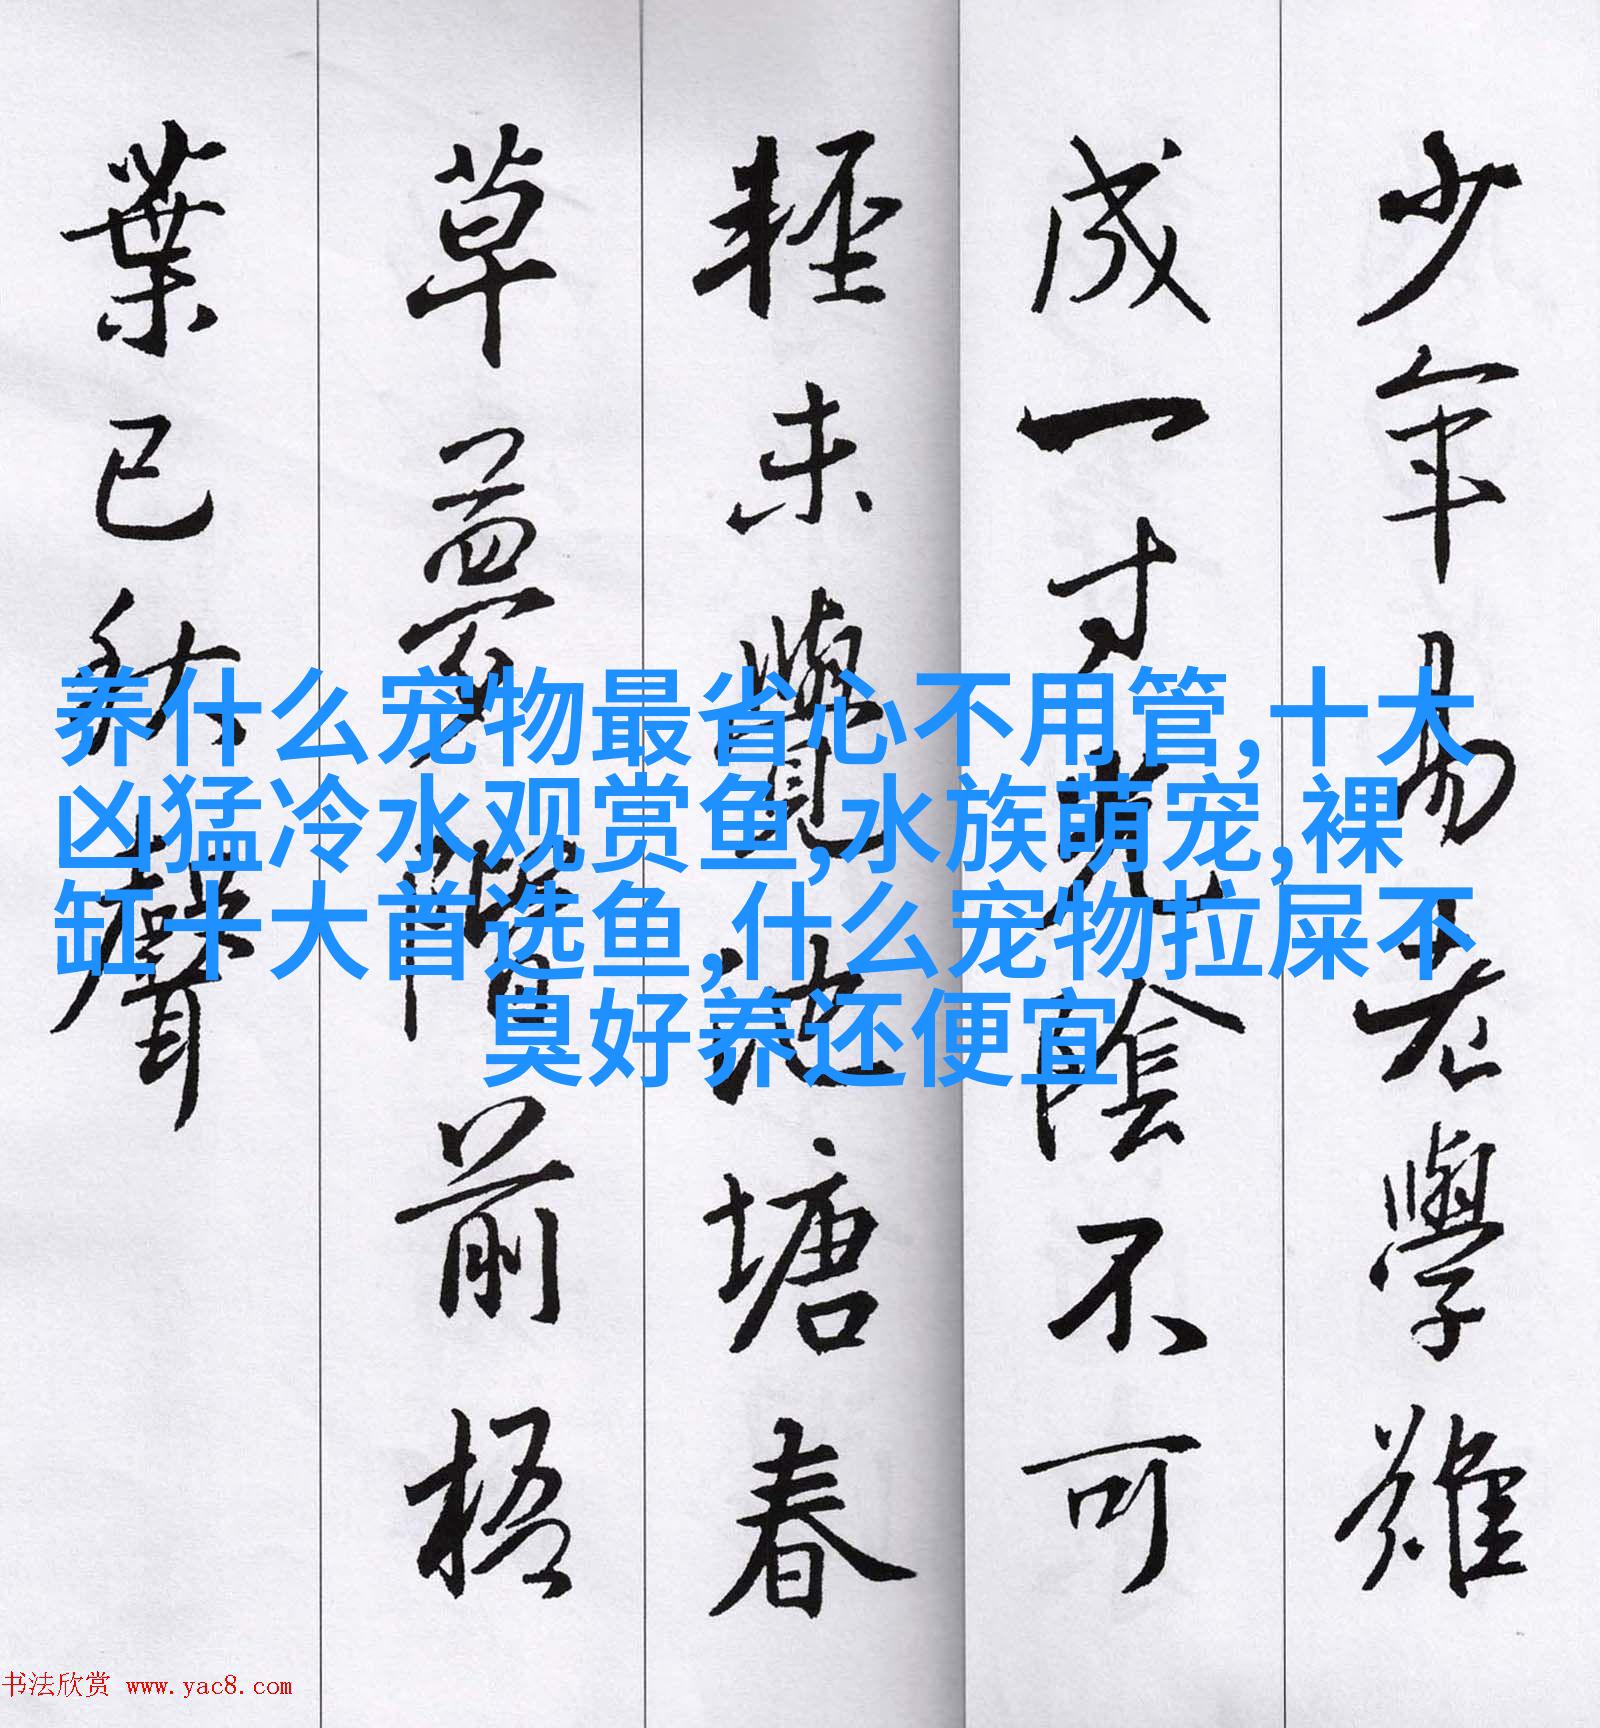 少年易老學難
成一寸光陰不可
輕未覺池塘春
草夢階前梧
葉已秋聲
养什么宠物最省心不用管,十大
凶猛冷水观赏鱼,水族萌宠,裸
缸十大首选鱼,什么宠物拉屎不
臭好养还便宜
书法欣赏 www.yac8.com